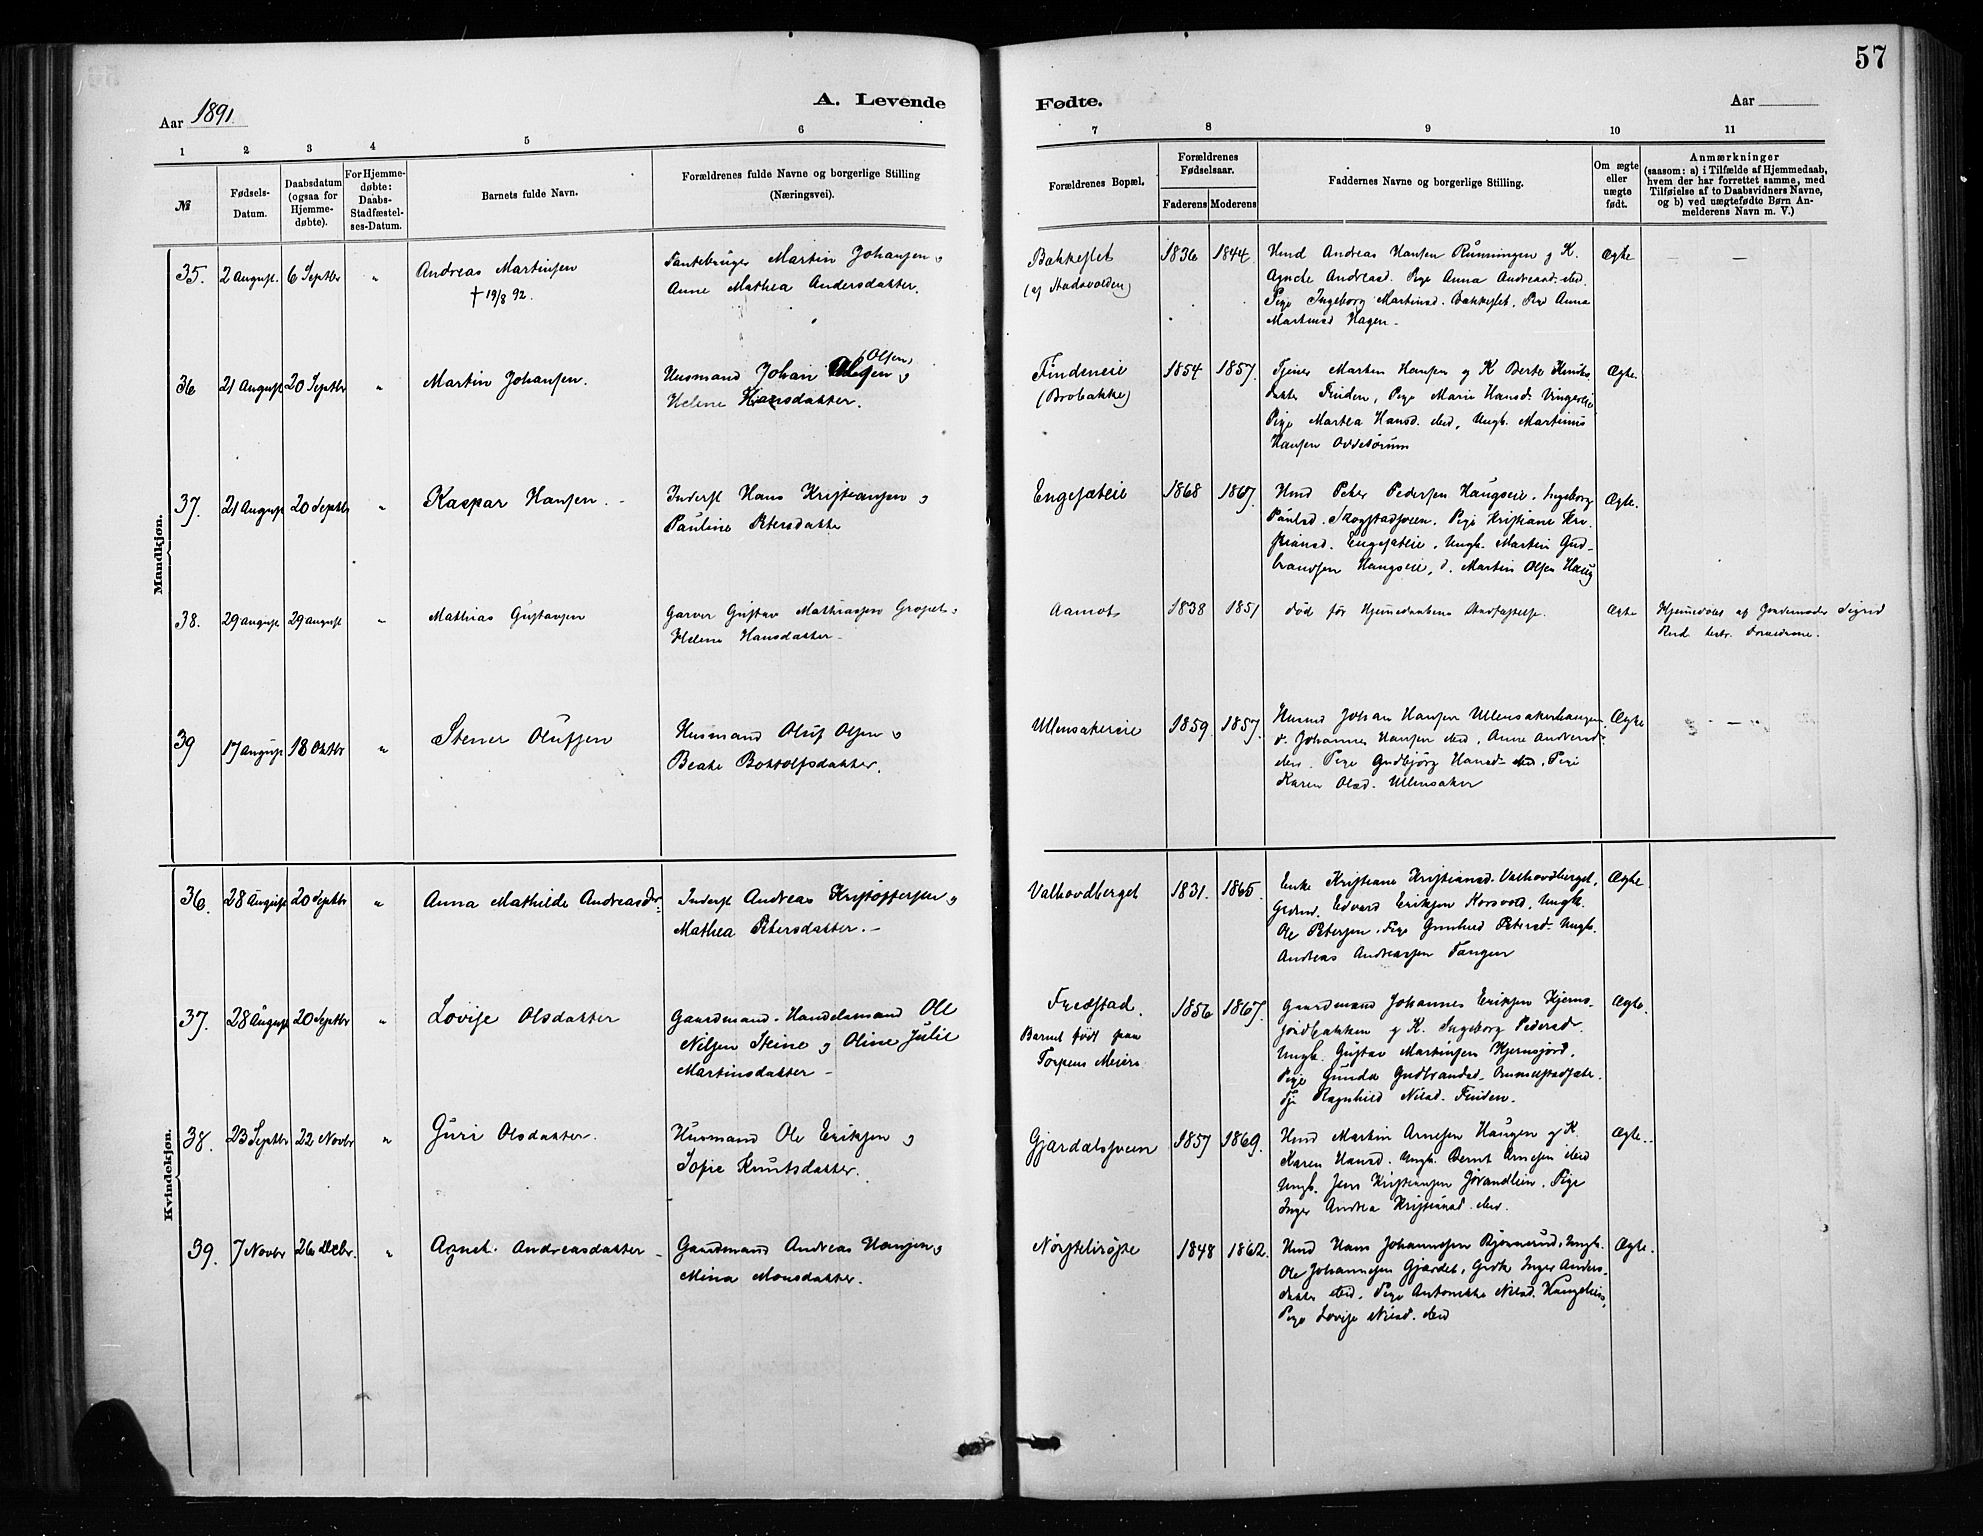 57
Aar 1891.
A. Levende
Fødte.
Aar
1
2
3
4
5
6
7
8
9
10
11
№
Fødsels-
Datum.
Daabsdatum
(ogsaa for
Hjemme-
døbte).
For Hjemme-
døbte:
Daabs-
Stadfæstel-
ses-Datum.
Barnets fulde Navn.
Forældrenes fulde Navne og borgerlige Stilling
(Næringsvei).
Forældrenes Bopæl.
Forældrenes
Fødselsaar.
Faderens
Moderens
Faddernes Navne og borgerlige Stilling.
Om ægte
eller
uægte
født.
Anmærkninger
(saasom: a) i Tilfælde af Hjemmedaab,
hvem der har forrettet samme, med
Tilføielse af to Daabsvidners Navne,
og b) ved uægtefødte Børn An-
melderens Navn m. V.)
Mandkjøn.
35. 2 August. 6 Septbr " Andreas Martinsen
† 19/8 92.
Martin Johansen o
Anne Mathea Andersdatter.
Bakkeflet
1836 1844
Hmd Andreas Hansen Rønningen og K.
Agnethe Andreasd. Pige Anna Andreasd. ibd.
Pige Ingeborg Martinsd. Bakkeflet, Pige Anna
Martinsd Hagen.
Ægte
36 21 August 20 Septbr " Martin Johansen.
Husmand Johan Olsen o
Helene Hansdatter.
Findeneie
(Brobakke)
1854 1857.
Tjener Marten Hansen og K Berte
datter Finden, Pige Marie Hansd.
Pige Marthea Hansd. ibd, Ungk. Martinus
Hansen
Ægte.
37. 21 August 20 Septbr " Kaspar Hansen.
Inderst Hans Kristiansen o
Pauline Petersdatter
Engesæteie
1868 1867.
Hmd Peter Pedersen Haugseie. Ingeborg
Paulsd. Skogstadsveen. Pige Kristiane Kri-
stiansd. Engesæteie, Ungk. Martin Gud-
brandsen Haugseie, d. Martin Olsen Haug
Ægte.
38. 29 August 29 August " Mathias Gustavsen
Garver Gustav Mathiassen
Helene Hansdatter
Aamot
1838 1851
død før Hjemmedaabens Stadfæstelse.
Ægte
Hjemmedøbt af Jordemoder Sigrid
Rud
39 17 August 18 Oktbr " Stener Olufsen
Husmand Oluf Olsen o
Beate Bottolfsdatter.
Ullensakereie
1859. 1857.
Husmd Johan Hansen Ullensakerhaugen
d. Johannes Hansen ibd, Anne Andersd.
ibd. Pige Gudbjørg Hansd. ibd, Pige
Karen Olsd. Ullensaker
Ægte
Kvindekjøn.
36. 28 August 20 Septbr " Anna Mathilde Andreasdr.
Inderst Andreas Kristoffersen o
Mathea Petersdatter.
Valhovdberget
1831. 1865.
Enke Kristiane Kristiansd. Valhovdberget,
Edvard Eriksen Korsvold, Ungk.
Ole Petersen. Pige Gunhild Petersd. Ungk.
Andreas Andreassen Tangen
Ægte.
37. 28 August 20 Septbr " Lovise Olsdatter
Gaardmand. Handelsmand Ole
Nilsen Steine o Oline Julie
Martinsdatter
Fredstad.
Barnet født paa
Torpens Meieri
1856 1867.
Gaardmand Johannes Eriksen Hjerns-
jordbakken og K. Ingeborg Pedersd.
Ungk. Gustav Martinsen Hjernsjord.
Pige Gunda Gudbrandsd.
Tj Ragnhild Nilsd. Finden.
Ægte.
38. 23 Septbr 22 Novbr " Guri Olsdatter.
Husmand Ole Eriksen o
Sofie Knutsdatter.
Gjærdalssveen
1857 1869.
Hmd Martin Arnesen Haugen og K.
Karen Hansd. Ungk. Bernt Arnesen ibd
Ungk. Jens Kristiansen Pige
Inger Andrea Kristiansd. ibd.
Ægte.
39. 7 Novbr 26 Decbr. " Agnet. Andreasdatter
Gaardmand Andreas Hansen o
Mina Monsdatter.
1848 1862.
Hmd Hans Johannesen Bjønnerud, Ungk.
Ole Johannesen Gjærdet, Inger Anders-
datter ibd. Pige Antonette Nilsd.
Pige Lovise Nilsd. ibd
Ægte.